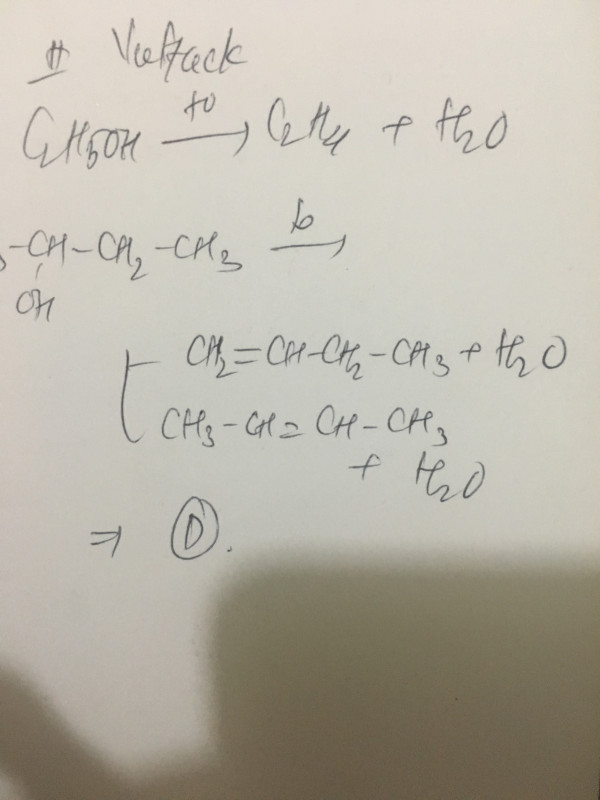 C2H5OH →(t0) C2H4 + H2O
-CH-CH2-CH3 →(to)
OH
CH2=CH-CH2-CH3 + H2O
CH3-CH=CH-CH3
+ H2O
⇒ D.